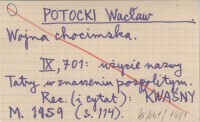 POTOCKI Wacław
Wojna chocimska.
IX, 701: użycie nazwy
Tatry w znaczeniu pospolitym.
Rec. (i cytat): KWAŚNY
M. 1959 (s. 114).